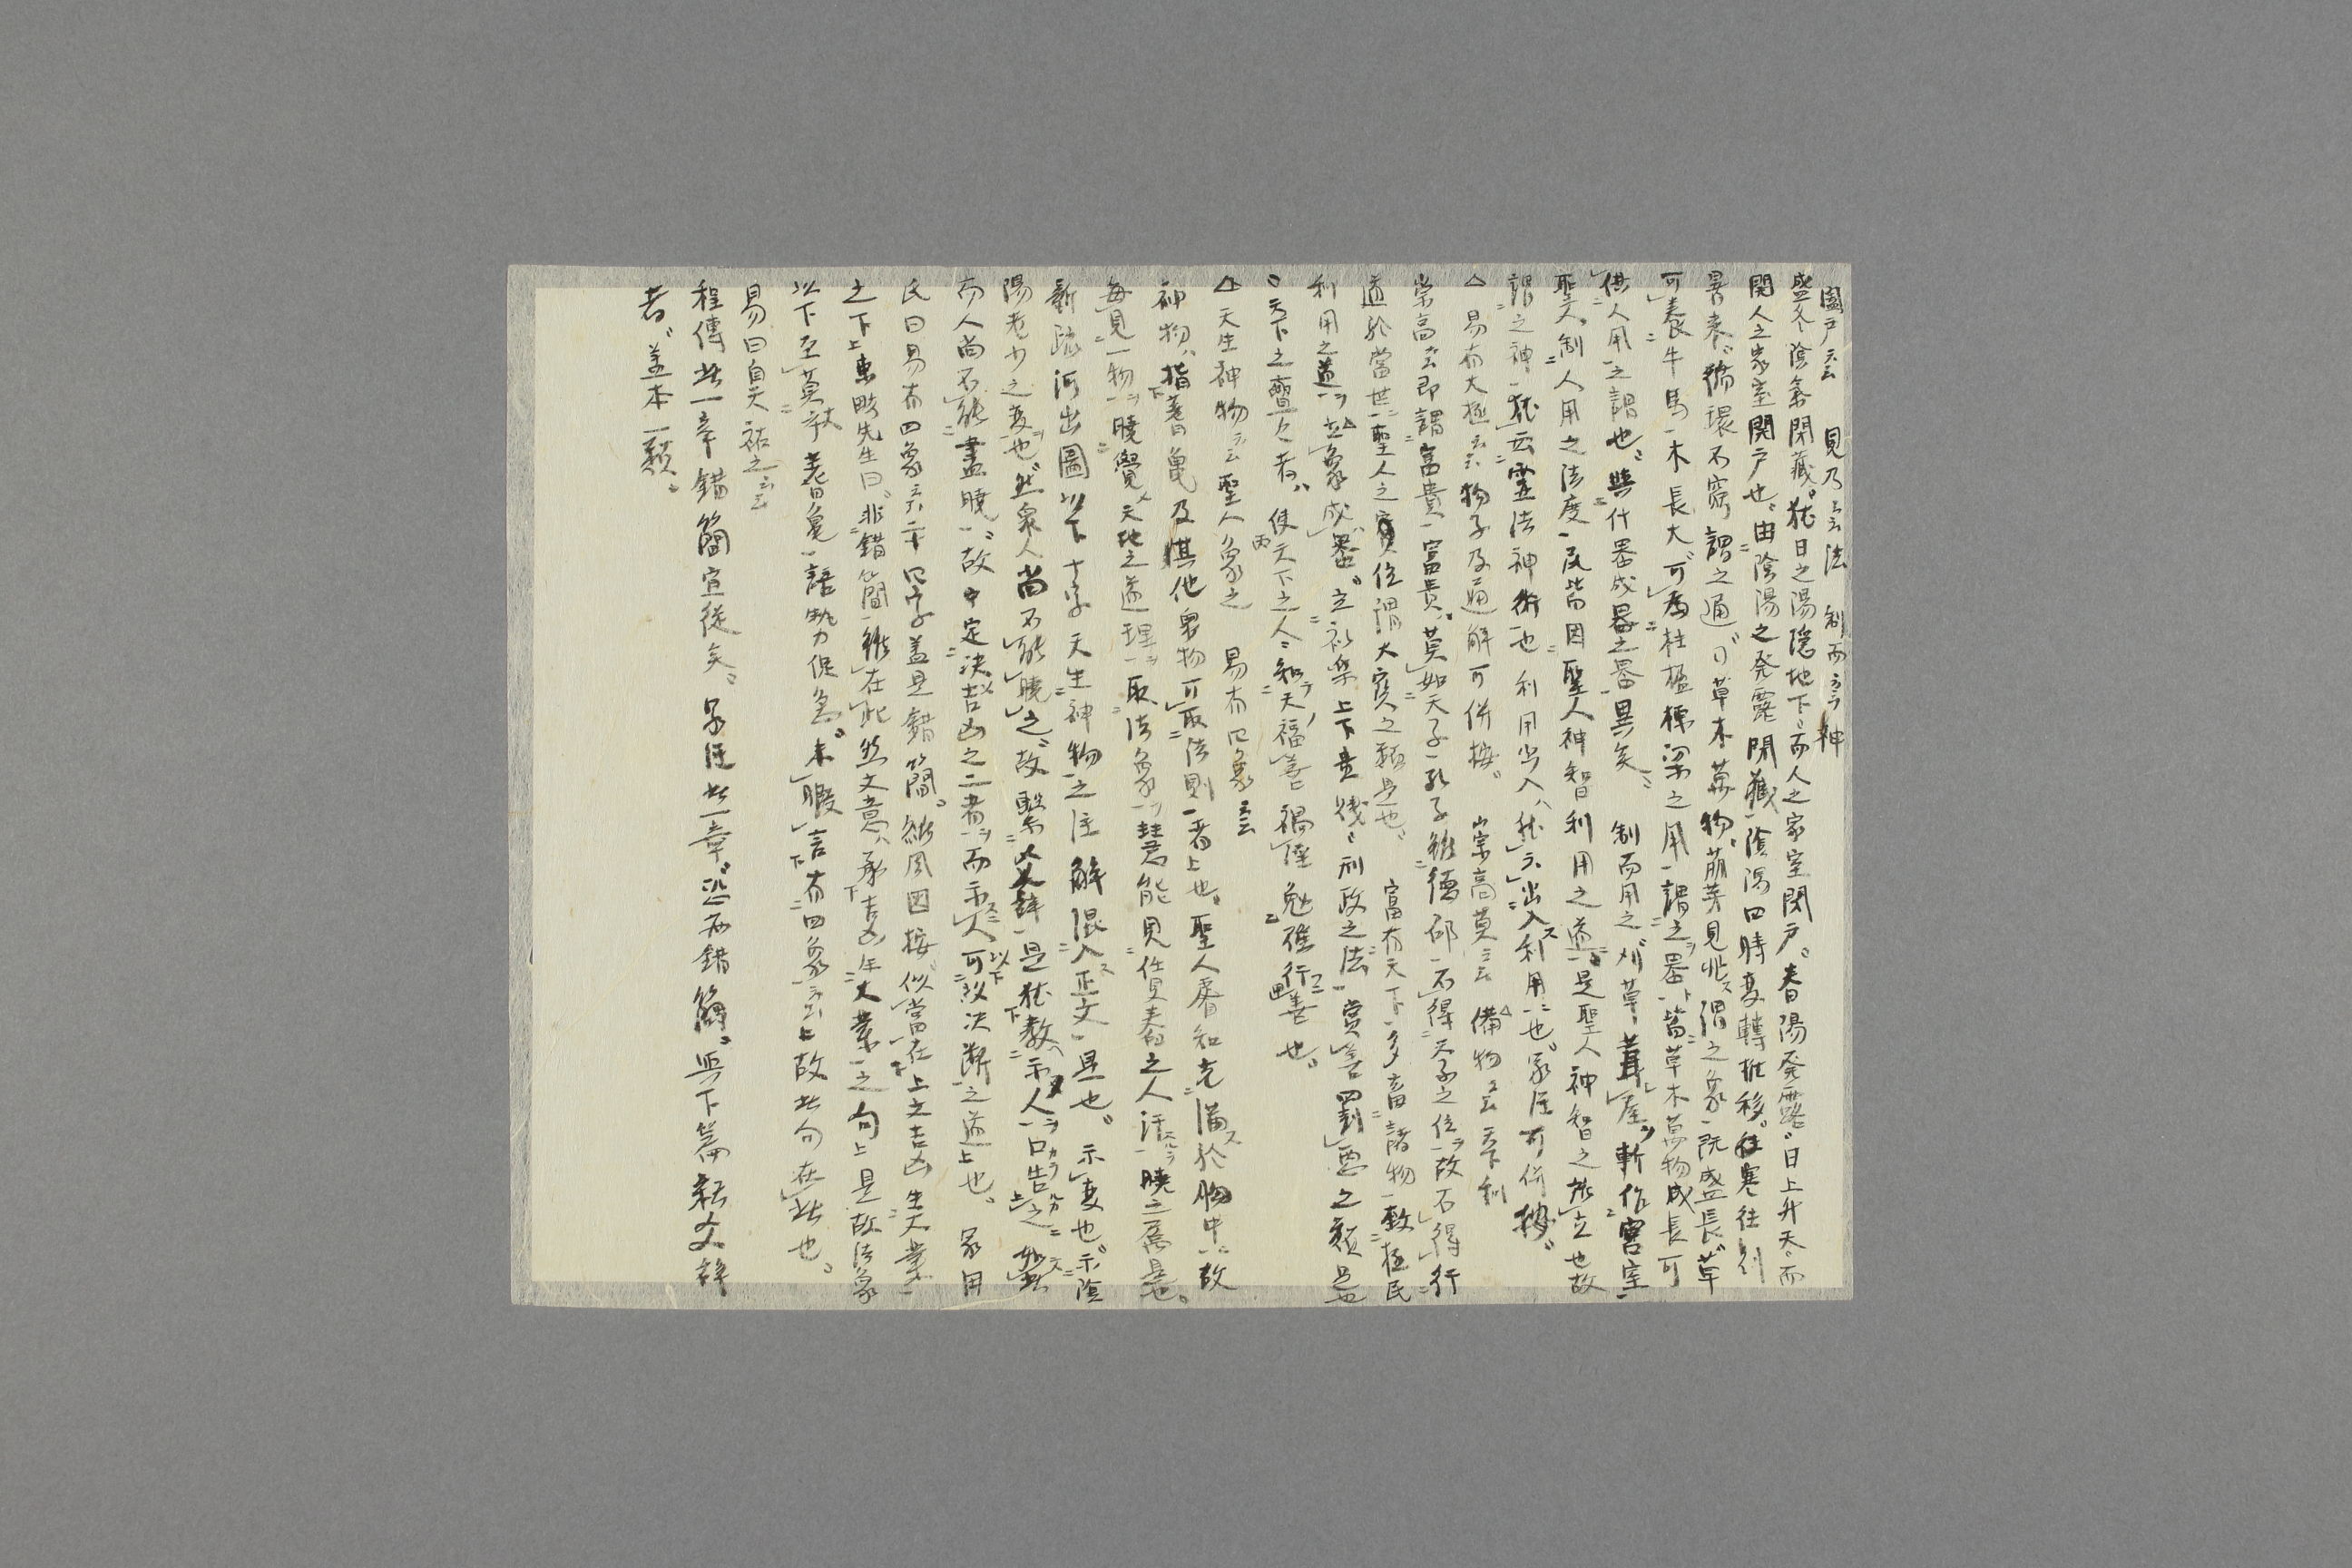 闔戸云云 見乃云云法 制而云云神
盛冬陰氣閉藏。猶日之陽隱地下、而人之家室閉戸。春陽発露、日上升天、而
開人之家室開戸也。由陰陽之発露閉藏、陰陽四時変轉推移。往寒往則
暑来、循環不窮謂之通。草木萬物、萠芽見兆、謂之象、既盛長、草
可養牛馬、木長大、可為柱楹棟梁之用、謂之器、皆草木萬物成長可
供人用之謂也。與什器成器之器異矣。 制而用之、刈草葺屋、斬作宮室、
聖人制人用之法度、民皆因聖人神智利用之道、是聖人神智之所立也故
謂之神、猶云霊法神術也 利用出入、猶云出入利用也。家註可併按。
△易有大極云云物子及通解可併按。 崇高莫云云 備物云云天下利
崇高云即謂富貴、富貴、莫如天子、孔子雖德邵、不得天子之位、故不得行
道於當世、聖人之寳位謂大寳之類是也。 富有天下、多畜諸物、致極民
利用之道、立象成器。立礼楽上下貴賤、刑政之法、賞善罰悪之類是也
○天下之亹亹者、使天下之人、知天福善禍淫勉強行善也。
△天生神物云云聖人象之 易有四象云云
神物、指蓍龜及其他衆物可取法則者也。聖人睿知充備於胸中、故
毎見一物、曉覺天地之道理、取法象、
新疏河出圖以下十字天生神物之註解混入正文、是也。示変也、示陰
陽老少之変也、然衆人尚不能曉之、故繋爻辞、是猶教示人口告之
而人尚不能盡曉、故中定決吉凶之二者、而示人可以决断之道也。 家用
氏曰易有四象云云二十四字蓋是錯簡。維風因按、似當在上文吉凶生大業
之下、東畡先生曰、非錯簡、雖在此然文意、承吉凶生大業之句上是故法象
以下至莫大乎蓍龜、語勢促急、未暇言有四象云云故此句在此也。
易曰自天祐之云云
程傳此章錯簡宜従矣。家註此章、恐有錯簡、與下篇
者、蓋本一類。